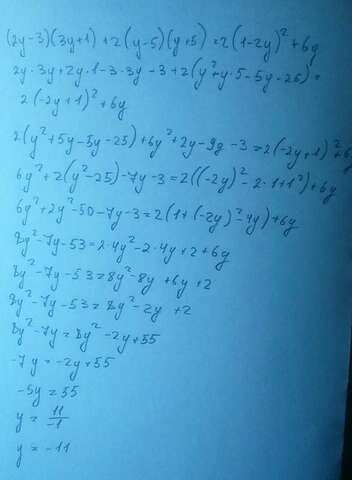 (2y-3)(3y+1)+2(y-5)(y+5)=2(1-2y)²+6y
2y·3y+2y·1-3·3y-3+2(y²+y·5-5y-25)=
2(-2y+1)²+6y
2(y²+5y-5y-25)+6y²+2y-9y-3=2(-2y+1)²+6y
6y²+2(y²-25)-7y-3=2((-2y)²-2·1+1²)+6y
6y²+2y²-50-7y-3=2(1+(-2y)²-4y)+6y
8y²-7y-53=2·4y²-2·4y+2+6y
8y²-7y-53=8y²-8y+6y+2
8y²-7y-53=8y²-2y+2
8y²-7y=8y²-2y+55
-7y=-2y+55
-5y=55
y=11/-1
y=-11